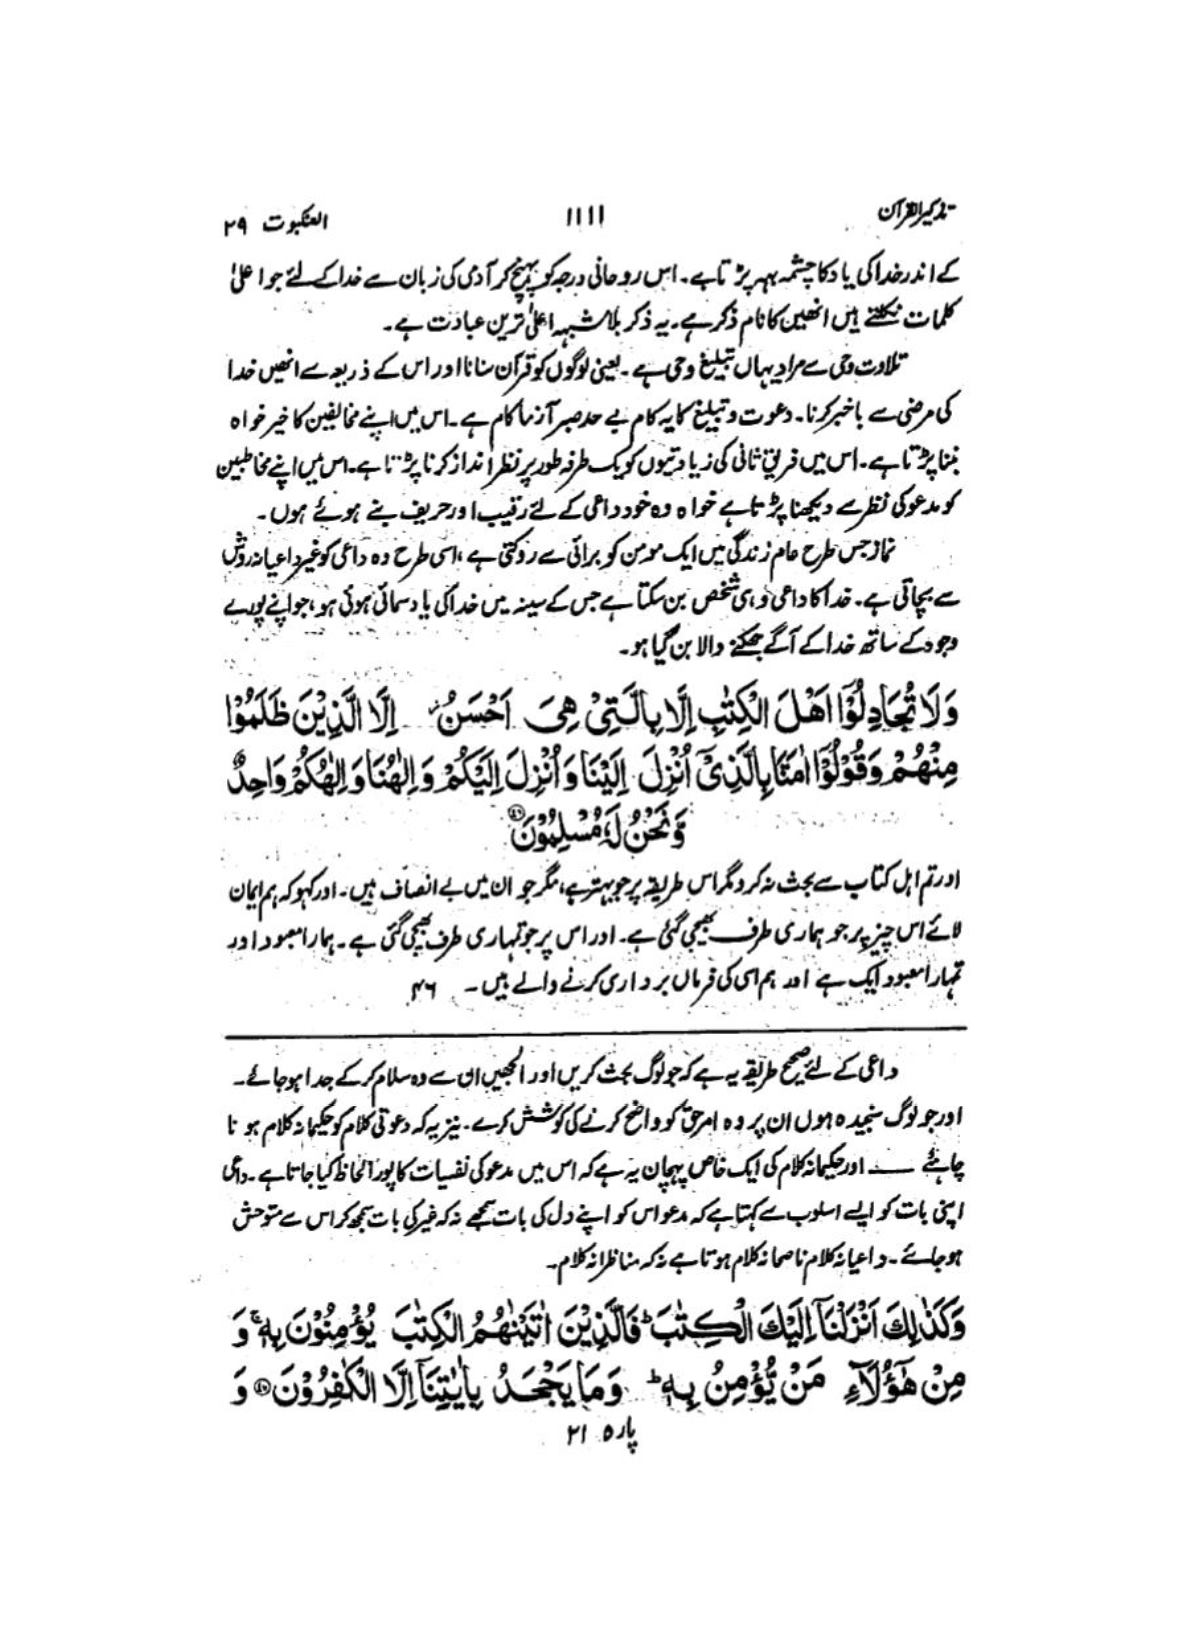 تذکیر القرآن ۱۱۱۱ العنکبوت ۲۹
کے اندر خدا کی یاد کا چشمہ بہہ پڑتا ہے۔ اس روحانی درجہ کو پہنچ کر آدمی کی زبان سے خدا کے لئے جو اعلیٰ
کلمات نکلتے ہیں انھیں کا نام ذکر ہے۔ یہ ذکر بلاشبہہ اعلیٰ ترین عبادت ہے۔
تلاوت وحی سے مراد یہاں تبلیغ وحی ہے۔ یعنی لوگوں کو قرآن سنانا اور اس کے ذریعہ سے انھیں خدا
کی مرضی سے باخبر کرنا۔ دعوت و تبلیغ کا یہ کام بے حد صبر آزما کام ہے۔ اس میں اپنے مخالفین کا خیر خواہ
بننا پڑتا ہے۔ اس میں فریق ثانی کی زیادتیوں کو یک طرفہ طور پر نظر انداز کرنا پڑتا ہے۔ اس میں اپنے مخاطبین
کو مدعو کی نظر سے دیکھنا پڑتا ہے خواہ وہ خود داعی کے لئے رقیب اور حریف بنے ہوئے ہوں۔
نماز جس طرح عام زندگی میں ایک مومن کو برائی سے روکتی ہے، اسی طرح وہ داعی کو غیر داعیانہ روش
سے بچاتی ہے۔ خدا کا داعی وہی شخص بن سکتا ہے جس کے سینہ میں خدا کی یاد سمائی ہوئی ہو، جو اپنے پورے
وجود کے ساتھ خدا کے آگے جھکنے والا بن گیا ہو۔
وَلَا تُجَادِلُوْٓا اَهْلَ الْكِتٰبِ اِلَّا بِالَّتِيْ هِيَ اَحْسَنُ ۖ اِلَّا الَّذِيْنَ ظَلَمُوْا
مِنْهُمْ وَقُوْلُوْٓا اٰمَنَّا بِالَّذِيْٓ اُنْزِلَ اِلَيْنَا وَاُنْزِلَ اِلَيْكُمْ وَاِلٰهُنَا وَاِلٰهُكُمْ وَاحِدٌ
وَّنَحْنُ لَهٗ مُسْلِمُوْنَ ۴۶
اور تم اہل کتاب سے بحث نہ کرو مگر اس طریقہ پر جو بہتر ہے، مگر جو ان میں بے انصاف ہیں۔ اور کہو کہ ہم ایمان
لائے اس چیز پر جو ہماری طرف بھیجی گئی ہے۔ اور اس پر جو تمہاری طرف بھیجی گئی ہے۔ ہمارا معبود اور
تمہارا معبود ایک ہے اور ہم اسی کی فرماں برداری کرنے والے ہیں۔ ۴۶
داعی کے لئے صحیح طریقہ یہ ہے کہ جو لوگ بحث کریں اور الجھیں ان سے وہ سلام کر کے جدا ہو جائے۔
اور جو لوگ سنجیدہ ہوں ان پر وہ امر حق کو واضح کرنے کی کوشش کرے۔ نیز یہ کہ دعوتی کلام کو حکیمانہ کلام ہونا
چاہئے ــــ اور حکیمانہ کلام کی ایک خاص پہچان یہ ہے کہ اس میں مدعو کی نفسیات کا پورا لحاظ کیا جاتا ہے۔ داعی
اپنی بات کو ایسے اسلوب سے کہتا ہے کہ مدعو اس کو اپنے دل کی بات سمجھے نہ کہ غیر کی بات سمجھ کر اس سے متوحش
ہو جائے۔ داعیانہ کلام ناصحانہ کلام ہوتا ہے نہ کہ مناظرانہ کلام۔
وَكَذٰلِكَ اَنْزَلْنَآ اِلَيْكَ الْكِتٰبَ ؕ فَالَّذِيْنَ اٰتَيْنٰهُمُ الْكِتٰبَ يُؤْمِنُوْنَ بِهٖ ۚ وَ
مِنْ هٰٓؤُلَآءِ مَنْ يُّؤْمِنُ بِهٖ ؕ وَمَا يَجْحَدُ بِاٰيٰتِنَآ اِلَّا الْكٰفِرُوْنَ ۴۷ وَ
پارہ ۲۱